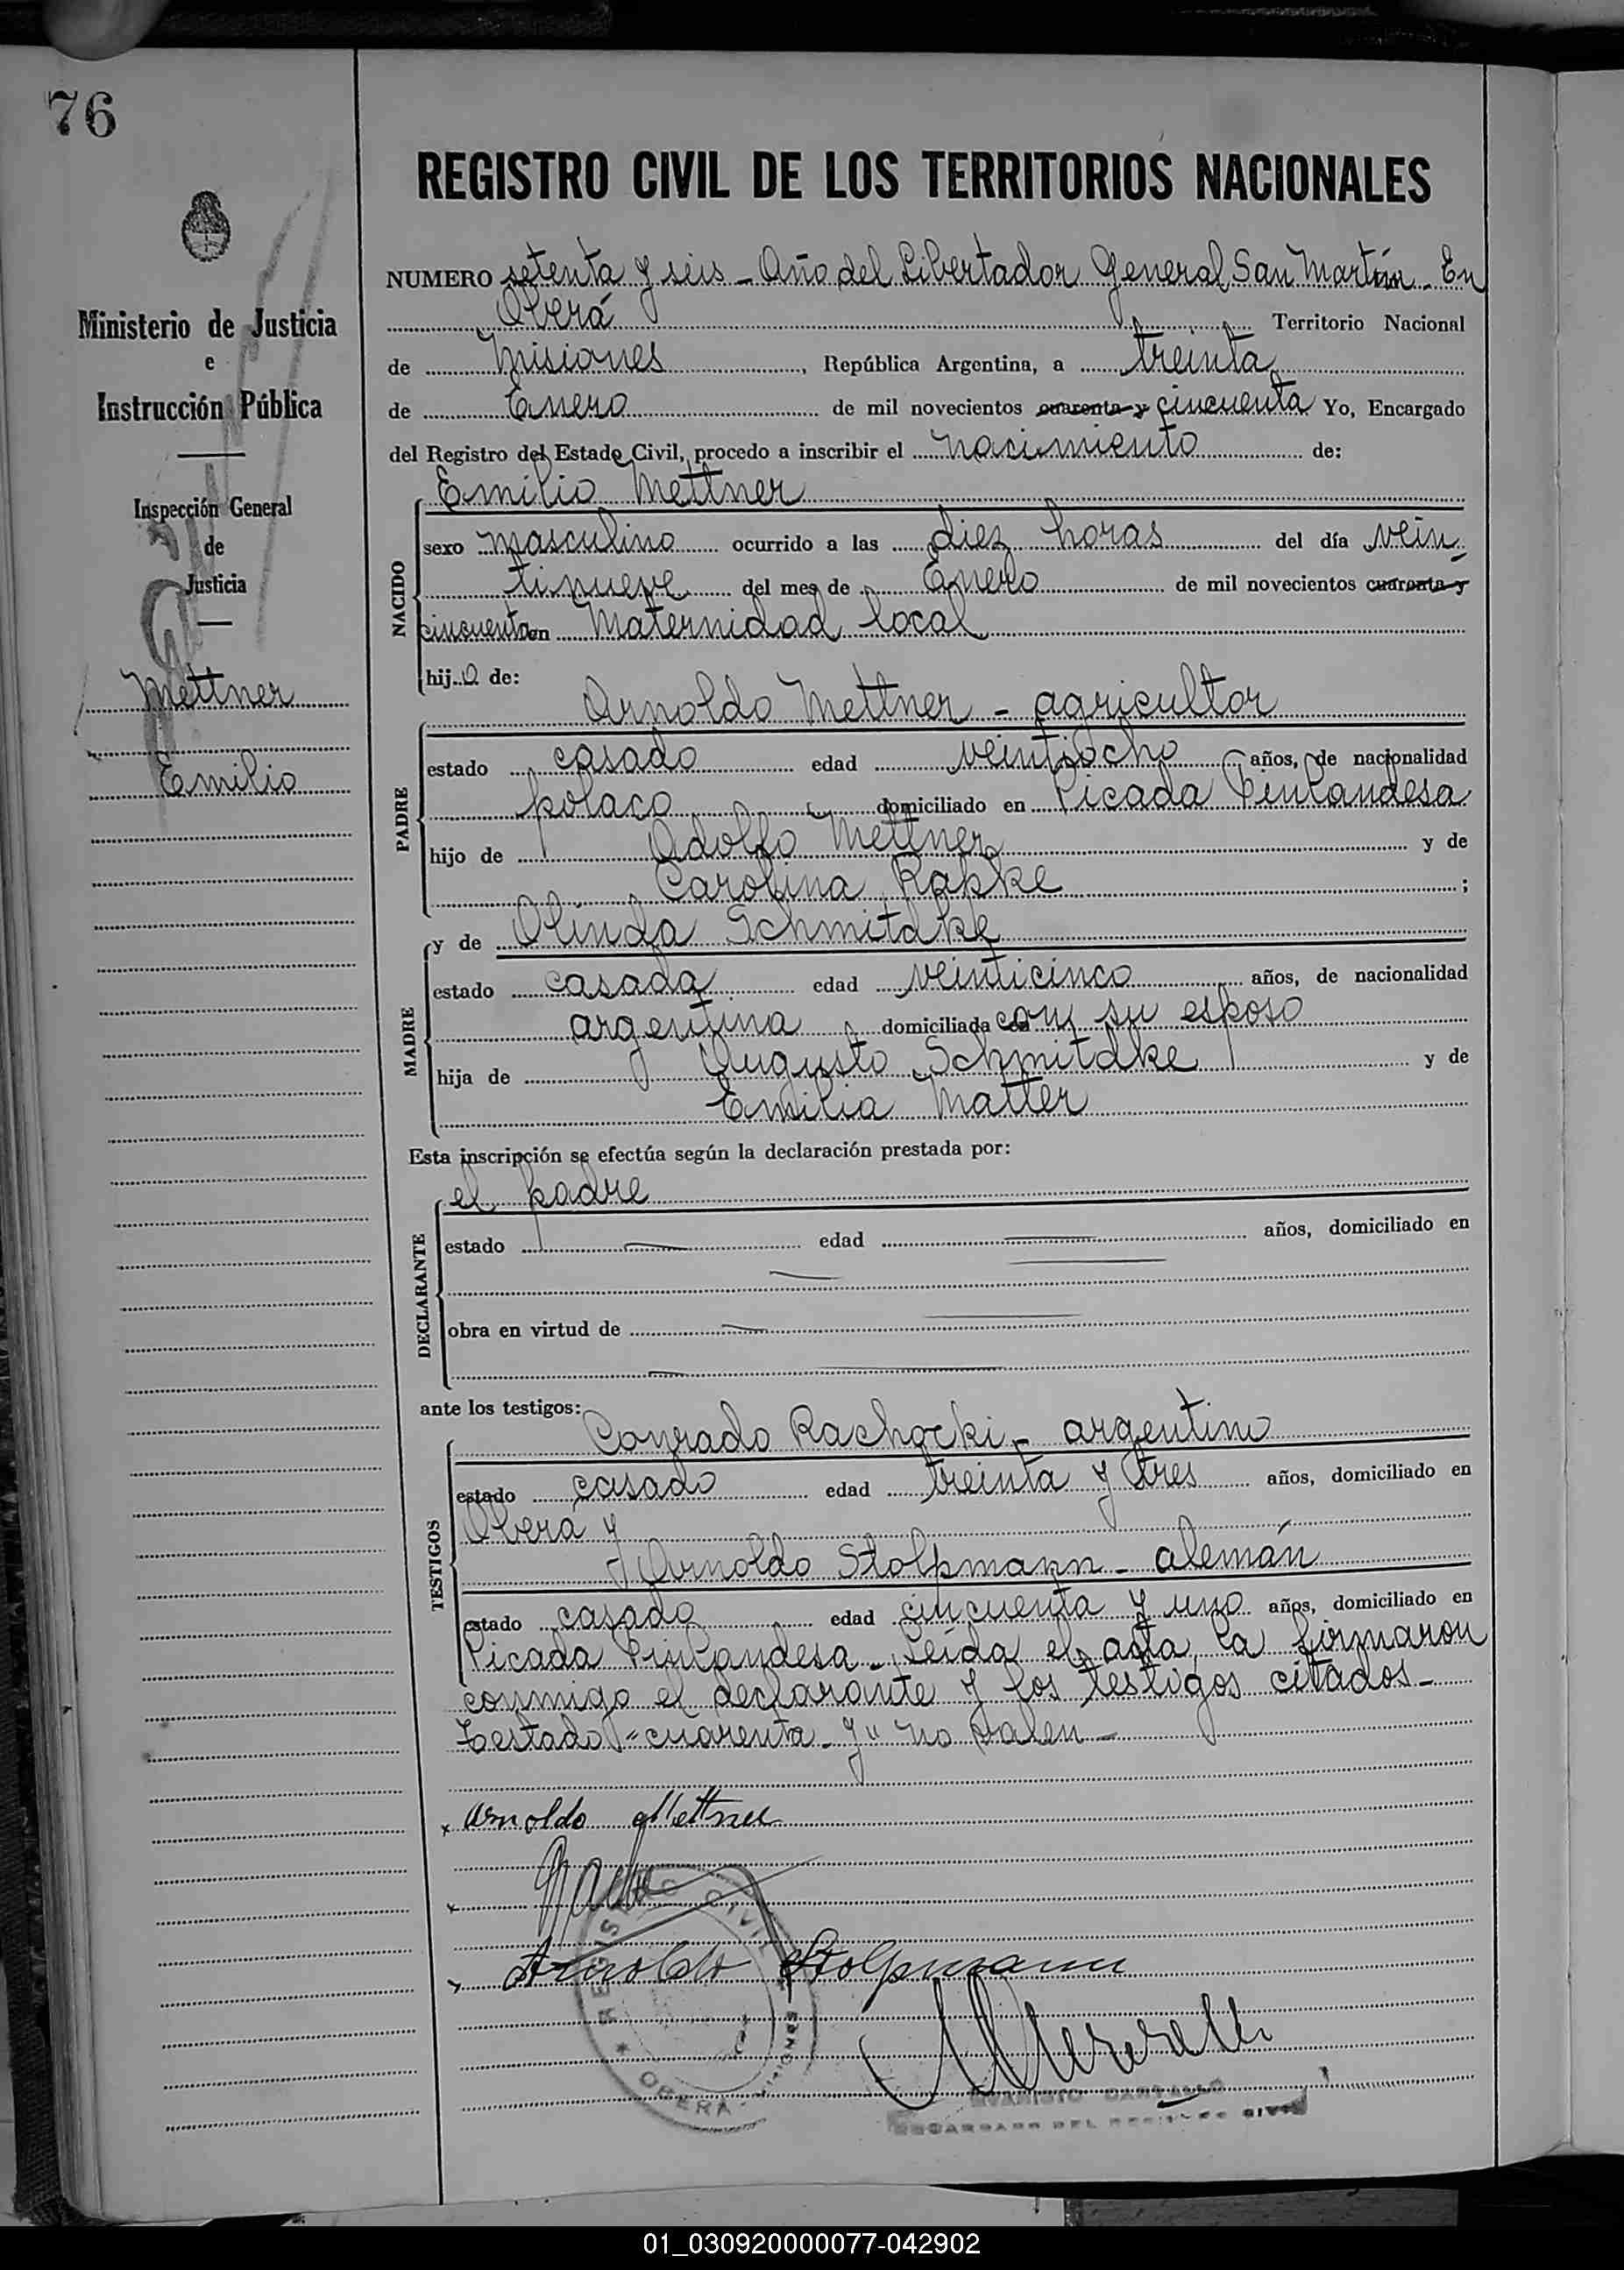 76
REGISTRO CIVIL DE LOS TERRITORIOS NACIONALES
Ministerio de Justicia
e
Instrucción Pública
Inspección General
de
Justicia
Mettner
Emilio
NUMERO setenta y seis - Año del Libertador General San Martín - En
Oberá Territorio Nacional
de Misiones, República Argentina, a treinta
de Enero de mil novecientos cuarenta y cincuenta Yo, Encargado
del Registro del Estado Civil, procedo a inscribir el nacimiento de:
NACIDO
Emilio Mettner
sexo masculino ocurrido a las diez horas del día vein-
tinueve del mes de Enero de mil novecientos cuarenta y
cincuenta en Maternidad local
hijo de:
PADRE
Arnoldo Mettner - agricultor
estado casado edad veintiocho años, de nacionalidad
polaco domiciliado en Picada Finlandesa
hijo de Adolfo Mettner y de
Carolina Rapke ;
MADRE
y de Olinda Schmitdke
estado casada edad veinticinco años, de nacionalidad
argentina domiciliada en con su esposo
hija de Augusto Schmitdke y de
Emilia Matter
Esta inscripción se efectúa según la declaración prestada por:
DECLARANTE
el padre
estado edad años, domiciliado en
obra en virtud de
ante los testigos:
TESTIGOS
Conrado Rachocki - argentino
estado casado edad treinta y tres años, domiciliado en
Oberá y
Arnoldo Stolpmann - alemán
estado casado edad cincuenta y uno años, domiciliado en
Picada Finlandesa - Leída el acta, la firmaron
conmigo el declarante y los testigos citados -
Testado "cuarenta y" no valen -
x Arnoldo Mettner
x
x Arnoldo Stolpmann
REGISTRO CIVIL
OBERÁ - MISIONES
ENCARGADO DEL REGISTRO CIVIL
01_030920000077-042902